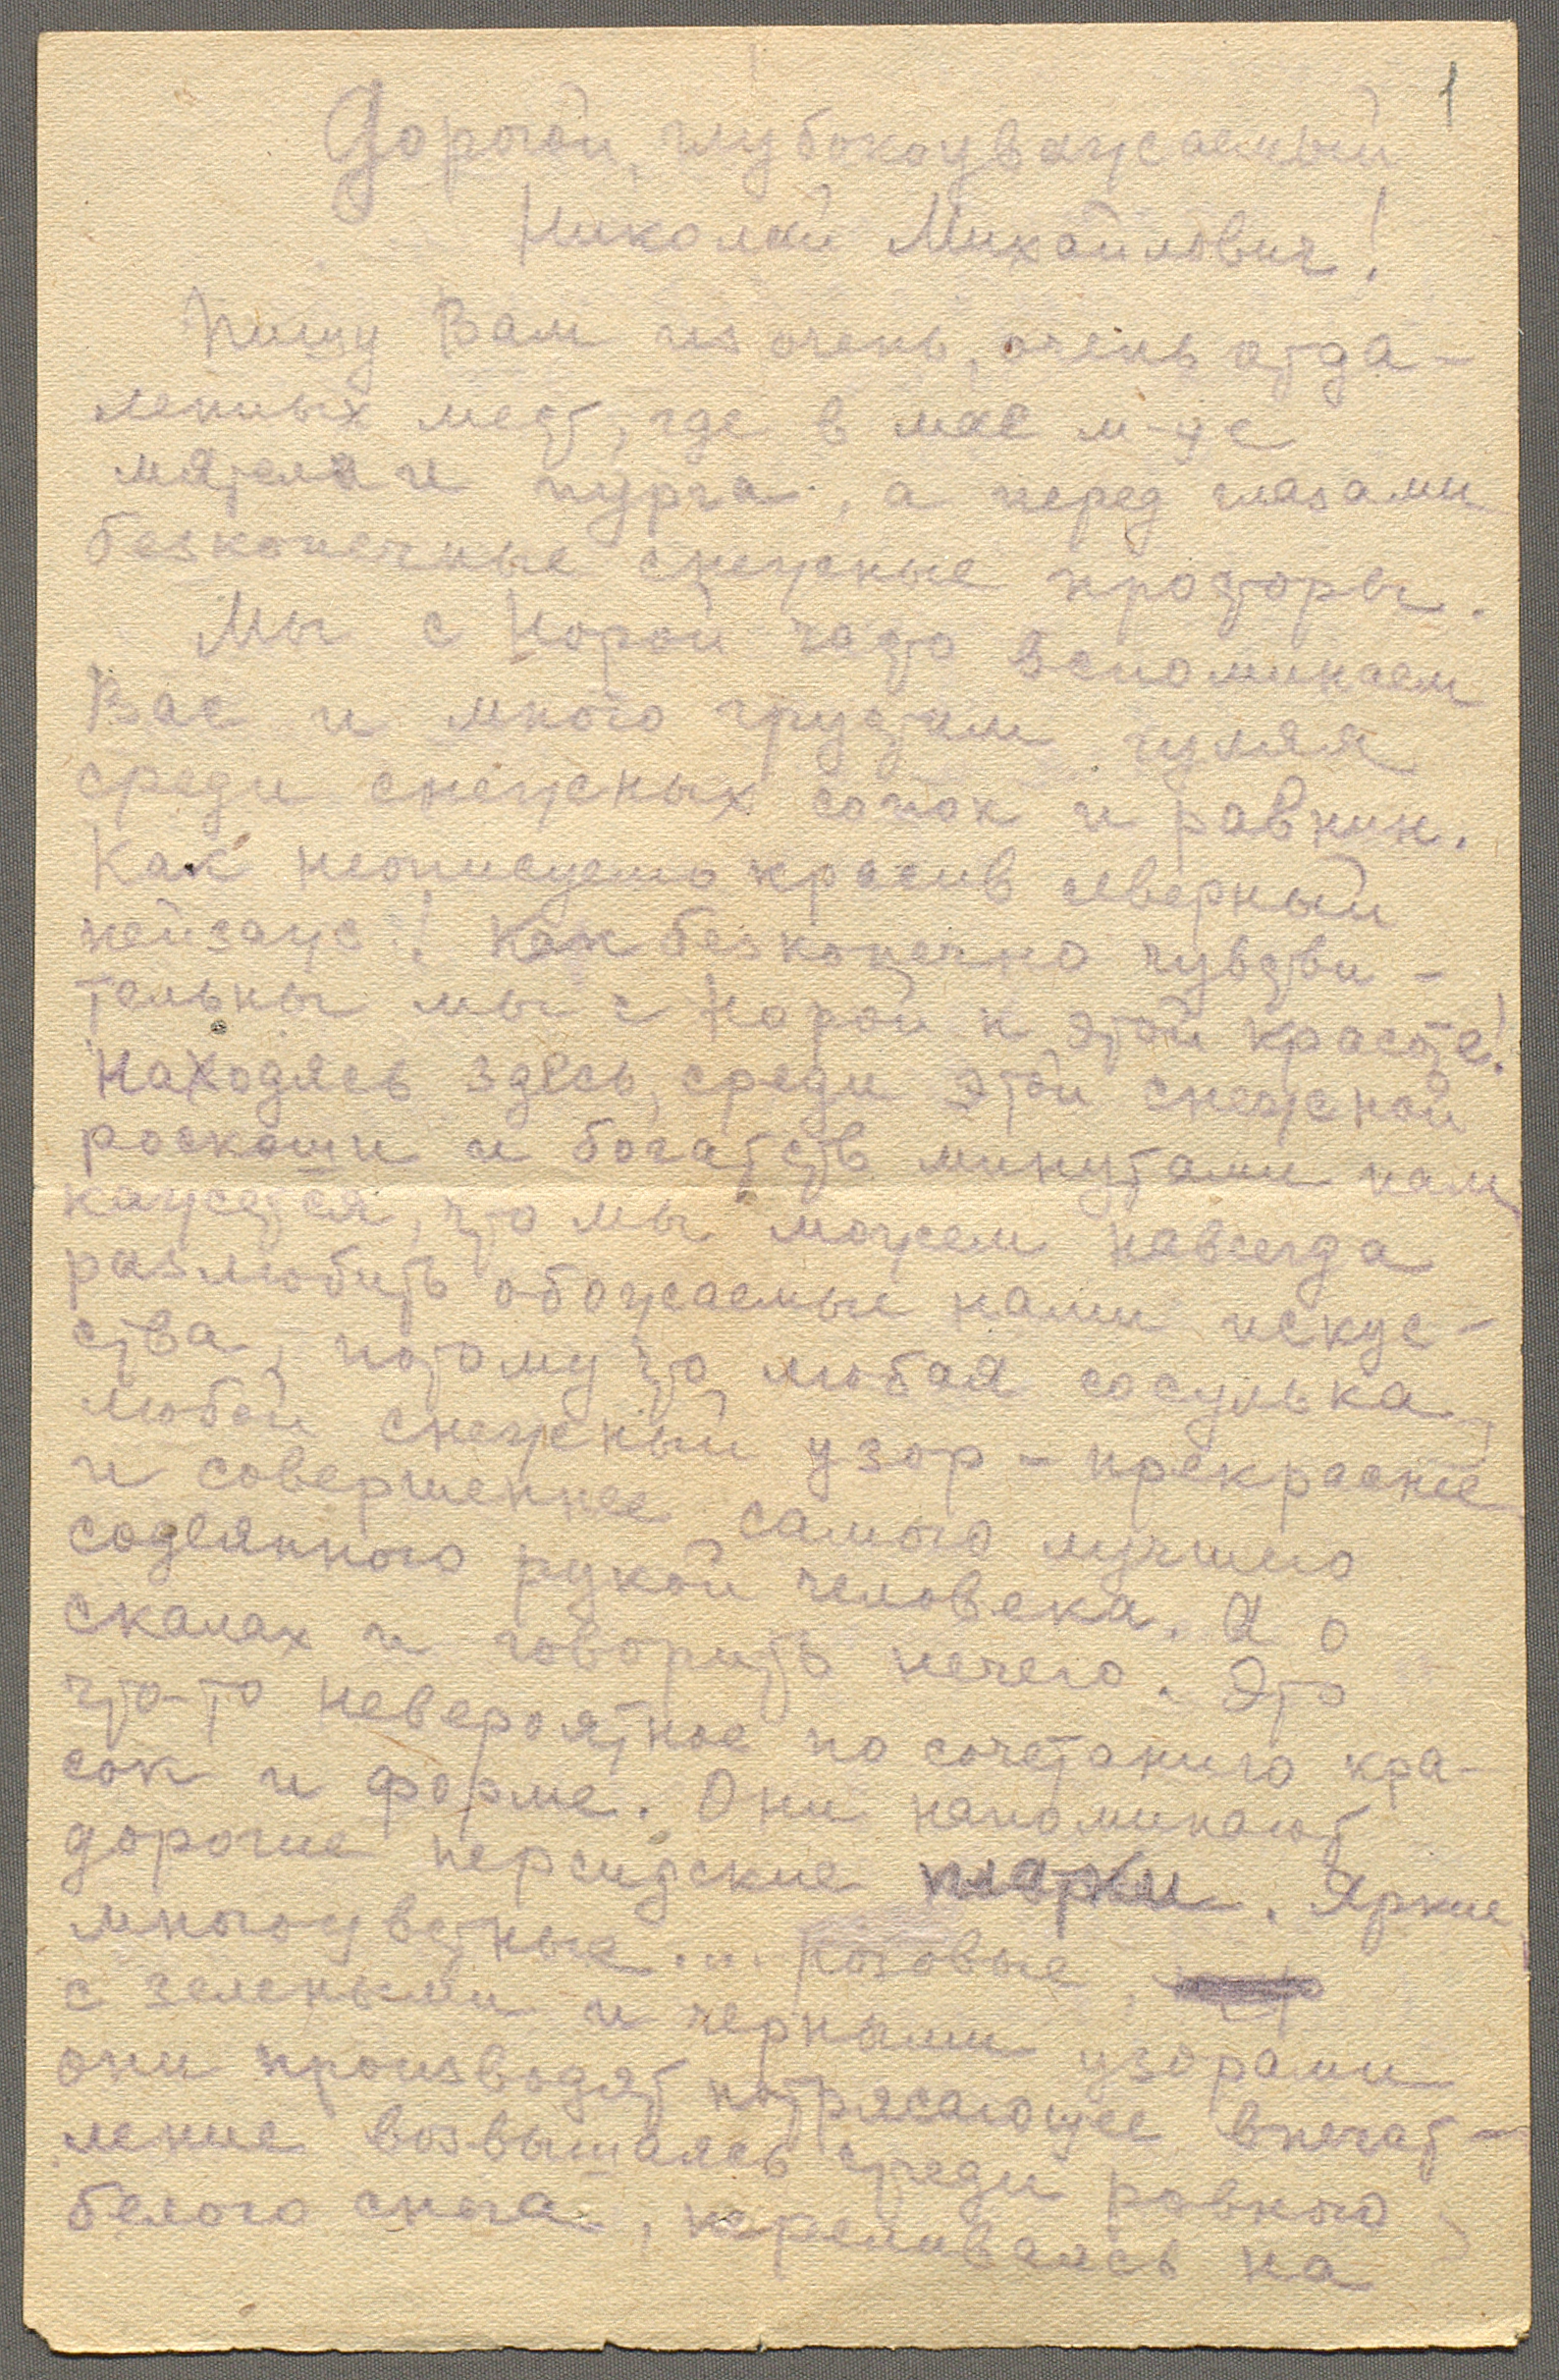 1
Дорогой, глубокоуважаемый
Николай Михайлович!
Пишу Вам из очень, очень отда-
ленных мест, где в мае м-це
мятели и пурга, а перед глазами
безконечные снежные просторы.
Мы с Норой часто вспоминаем
Вас и много грустим гуляя
среди снежных сопок и равнин.
Как неописуемо красив северный
пейзаж! Как безконечно чувстви-
тельны мы с Норой к этой красоте!
Находясь здесь, среди этой снежной
роскоши и богатств минутами нам
кажется, что мы можем навсегда
разлюбить обожаемые нами искус-
ства, потому что любая сосулька,
любой снежный узор - прекраснее
и совершеннее самого лучшего
содеянного рукой человека. А о
скалах и говорить нечего. Это
что-то невероятное по сочетанию кра-
сок и форме. Они напоминают
дорогие персидские шарки. Яркие
многоцветные... розовые,
с зелеными и черными узорами
они производят потрясающее впечат-
ление возвышаясь среди ровного
белого снега, переливаясь на